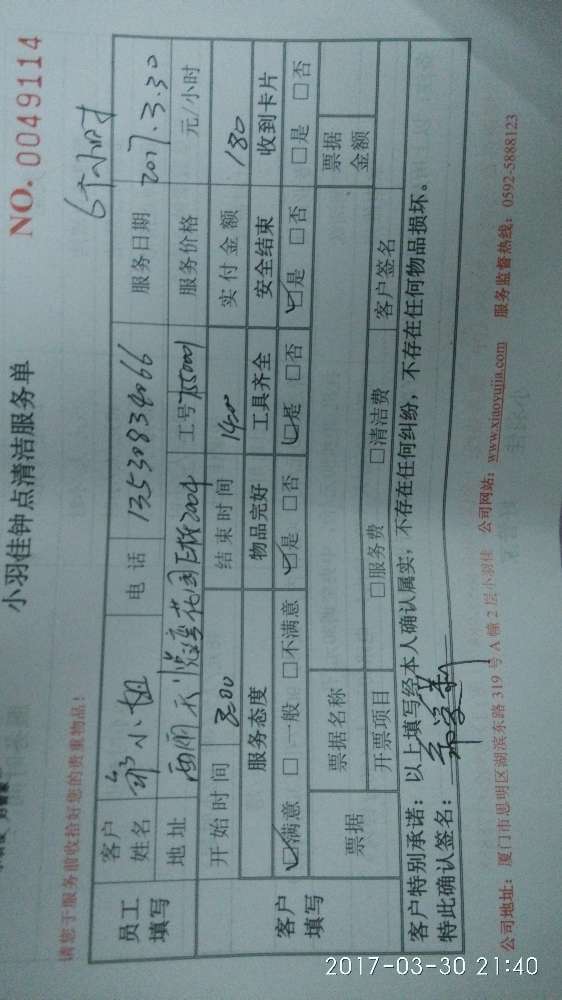 小羽佳钟点清洁服务单
NO. 0049114
请您于服务前收拾好您的贵重物品!
6个小时
员工填写 客户姓名 小姐 电话 13530834066 服务日期 2017.3.30
地址 花园 2004 工号 服务价格 元/小时
客户填写 开始时间 8:00 结束时间 1400 实付金额 180
服务态度 物品完好 工具齐全 安全结束 收到卡片
☑满意 □一般 □不满意 ☑是 □否 ☑是 □否 ☑是 □否 □是 □否
票据 票据名称 票据金额
开票项目 □服务费 □清洁费 客户签名
客户特别承诺:以上填写经本人确认属实,不存在任何纠纷,不存在任何物品损坏。
特此确认签名:
公司地址:厦门市思明区湖滨东路319号A幢2层小羽佳 公司网站:www.xiaoyujia.com 服务监督热线:0592-5888123
2017-03-30 21:40